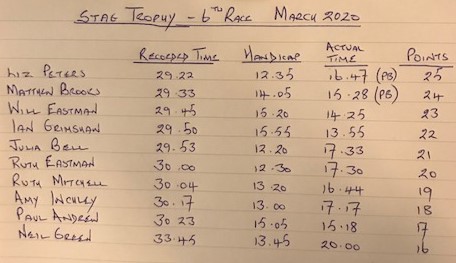 STAG TROPHY - 6TH RACE MARCH 2020
RECORDED TIME HANDICAP ACTUAL TIME POINTS
LIZ PETERS 29.22 12.35 16.47 (PB) 25
MATTHEW BROOKS 29.33 14.05 15.28 (PB) 24
WILL EASTMAN 29.45 15.20 14.25 23
IAN GRIMSHAW 29.50 15.55 13.55 22
JULIA BELL 29.53 12.20 17.33 21
RUTH EASTMAN 30.00 12.30 17.30 20
RUTH MITCHELL 30.04 13.20 16.44 19
AMY INCHLEY 30.17 13.00 17.17 18
PAUL ANDREW 30.23 15.05 15.18 17
NEIL GREEN 33.45 13.45 20.00 16